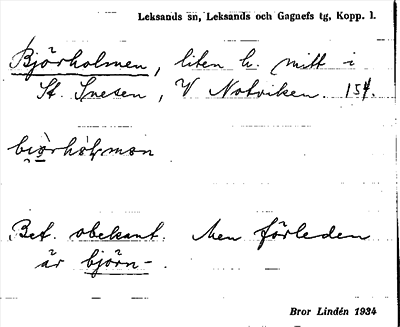 Leksands sn, Leksands och Gagnefs tg, Kopp. l.
Björholmen, liten h. mitt i
St. Snesen, V Notviken. 154.
bjo̱rhòḷmȯn
Bet. obekant. Men förleden
är björn-.
Bror Lindén 1934